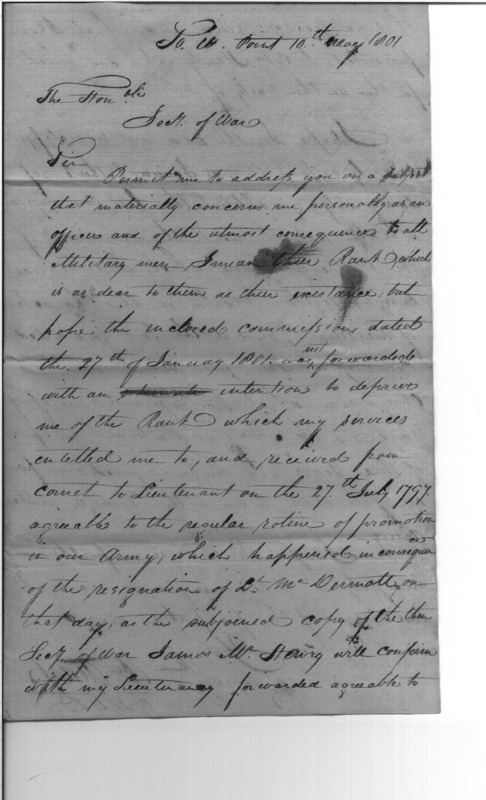 So. W. Point 10.th May 1801
The Honble
Secy. of War
Sir
Permit me to address you on a subject
that materially concerns me personally as an
officer and of the utmost consequence to all
Military men, I mean their Rank, which
is as dear to them as their existance, but
hope the enclosed commission dated
the 27th of January 1801. was not forwarded
with an intention to deprive
me of the Rank which my services
entitled me to, and received from
cornet to Lieutenant on the 27.th July 1797.
agreeable to the regular rotine of promotion
in our Army, which happened in consequence
of the resignation of Lt. McDermott, on
that day, as the subjoined copy of the then
Secy. of War James Mc. Henry will confirm
with my Lieutenancy forwarded agreeable to